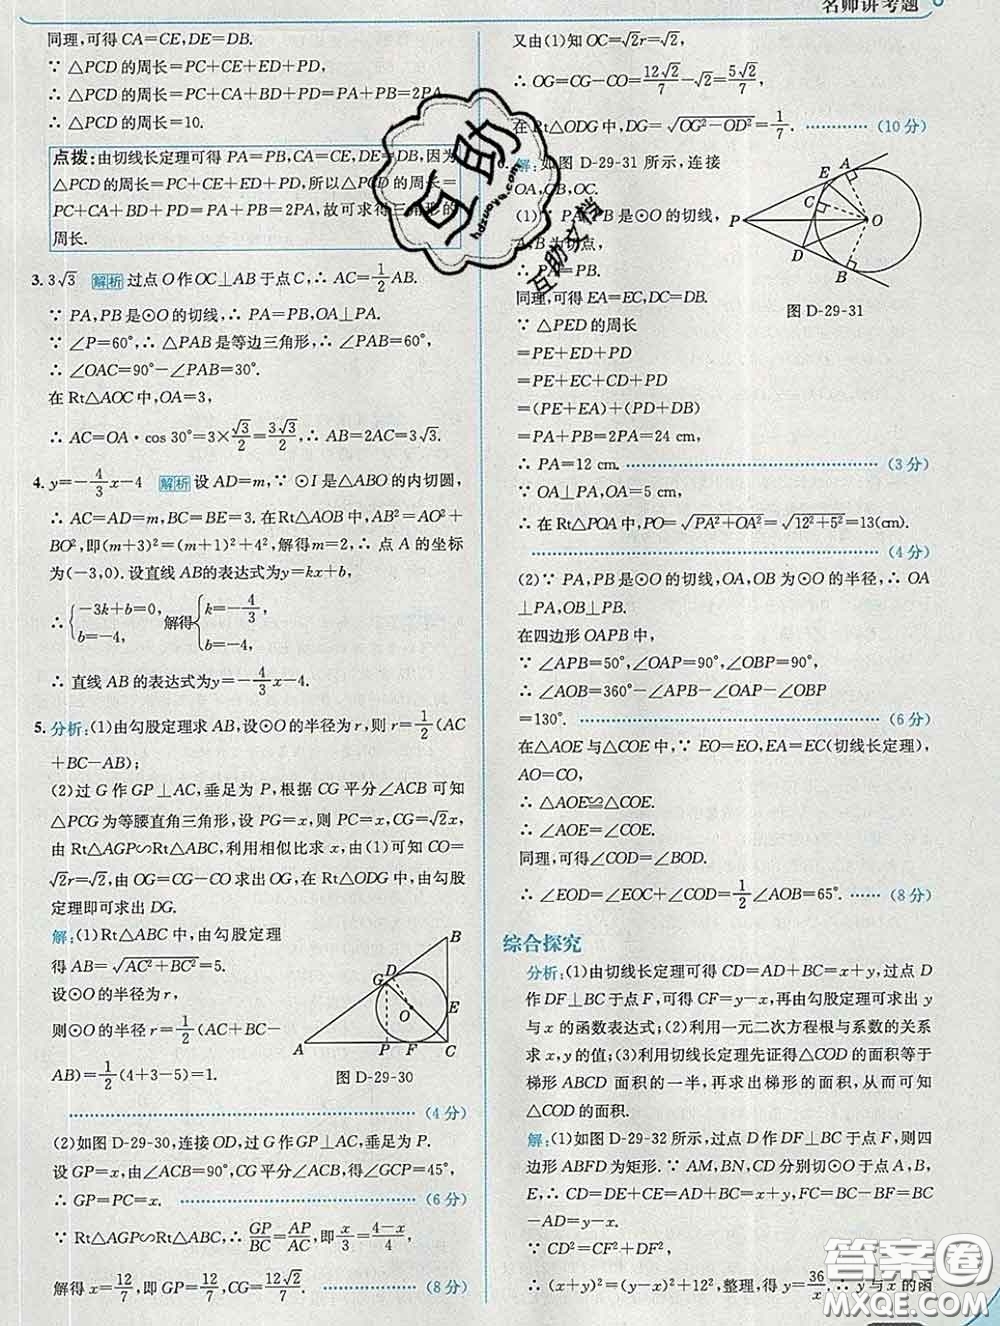 名师讲考题
同理,可得CA=CE,DE=DB.
∵ △PCD的周长=PC+CE+ED+PD,
∴ △PCD的周长=PC+CA+BD+PD=PA+PB=2PA,
∴ △PCD的周长=10.
点拨:由切线长定理可得PA=PB,CA=CE,DE=DB,因为
△PCD的周长=PC+CE+ED+PD,所以△PCD的周长=
PC+CA+BD+PD=PA+PB=2PA,故可求得三角形的
周长.
3. 3√3 解析 过点O作OC⊥AB于点C,∴ AC=1/2AB.
∵ PA,PB是⊙O的切线,∴ PA=PB,OA⊥PA.
∵ ∠P=60°,∴ △PAB是等边三角形,∴ ∠PAB=60°,
∴ ∠OAC=90°-∠PAB=30°.
在Rt△AOC中,OA=3,
∴ AC=OA·cos 30°=3×√3/2=3√3/2,∴ AB=2AC=3√3.
4. y=-4/3x-4 解析 设AD=m,∵ ⊙I是△ABO的内切圆,
∴ AC=AD=m,BC=BE=3.在Rt△AOB中,AB²=AO²+
BO²,即(m+3)²=(m+1)²+4²,解得m=2,∴ 点A的坐标
为(-3,0).设直线AB的表达式为y=kx+b,
∴ {-3k+b=0, b=-4, 解得{k=-4/3, b=-4,
∴ 直线AB的表达式为y=-4/3x-4.
5. 分析:(1)由勾股定理求AB,设⊙O的半径为r,则r=1/2(AC
+BC-AB);
(2)过G作GP⊥AC,垂足为P,根据CG平分∠ACB可知
△PCG为等腰直角三角形,设PG=x,则PC=x,CG=√2x,
由Rt△AGP∽Rt△ABC,利用相似比求x,由(1)可知CO=
√2r=√2,由OG=CG-CO求出OG,在Rt△ODG中,由勾股
定理即可求出DG.
解:(1)Rt△ABC中,由勾股定理
得AB=√(AC²+BC²)=5.
设⊙O的半径为r,
则⊙O的半径r=1/2(AC+BC-
AB)=1/2(4+3-5)=1.
B
D
G
O
E
A
P
F
C
图D-29-30
(4分)
(2)如图D-29-30,连接OD,过G作GP⊥AC,垂足为P.
设GP=x,由∠ACB=90°,CG平分∠ACB,得∠GCP=45°,
∴ GP=PC=x. (6分)
∵ Rt△AGP∽Rt△ABC,∴ GP/BC=AP/AC,即x/3=(4-x)/4,
解得x=12/7,即GP=12/7,CG=12√2/7. (8分)
又由(1)知OC=√2r=√2,
∴ OG=CG-CO=12√2/7-√2=5√2/7,
在Rt△ODG中,DG=√(OG²-OD²)=1/7. (10分)
解:如图D-29-31所示,连接
OA,OB,OC.
(1)∵ PA,PB是⊙O的切线,
A,B为切点,
∴ PA=PB.
同理,可得EA=EC,DC=DB.
A
E
C
P
O
D
B
图D-29-31
∵ △PED的周长
=PE+ED+PD
=PE+EC+CD+PD
=(PE+EA)+(PD+DB)
=PA+PB=2PA=24 cm,
∴ PA=12 cm. (3分)
∵ OA⊥PA,OA=5 cm,
∴ 在Rt△POA中,PO=√(PA²+OA²)=√(12²+5²)=13(cm).
(4分)
(2)∵ PA,PB是⊙O的切线,OA,OB为⊙O的半径,∴ OA
⊥PA,OB⊥PB.
在四边形OAPB中,
∵ ∠APB=50°,∠OAP=90°,∠OBP=90°,
∴ ∠AOB=360°-∠APB-∠OAP-∠OBP
=130°. (6分)
在△AOE与△COE中,∵ EO=EO,EA=EC(切线长定理),
AO=CO,
∴ △AOE≌△COE.
∴ ∠AOE=∠COE.
同理,可得∠COD=∠BOD.
∴ ∠EOD=∠EOC+∠COD=1/2∠AOB=65°. (8分)
综合探究
分析:(1)由切线长定理可得CD=AD+BC=x+y,过点D
作DF⊥BC于点F,可得CF=y-x,再由勾股定理可求出y
与x的函数表达式;(2)利用一元二次方程根与系数的关系
求x,y的值;(3)利用切线长定理先证得△COD的面积等于
梯形ABCD面积的一半,再求出梯形的面积,从而可知
△COD的面积.
解:(1)如图D-29-32所示,过点D作DF⊥BC于点F,则四
边形ABFD为矩形.∵ AM,BN,CD分别切⊙O于点A,B,
E,∴ CD=DE+CE=AD+BC=x+y,CF=BC-BF=BC
-AD=y-x.
∵ CD²=CF²+DF²,
∴ (x+y)²=(y-x)²+12²,整理,得y=36/x.∴ y与x的函
互助
hdzuoye.com
互助文档
答案圈
MXQE.COM